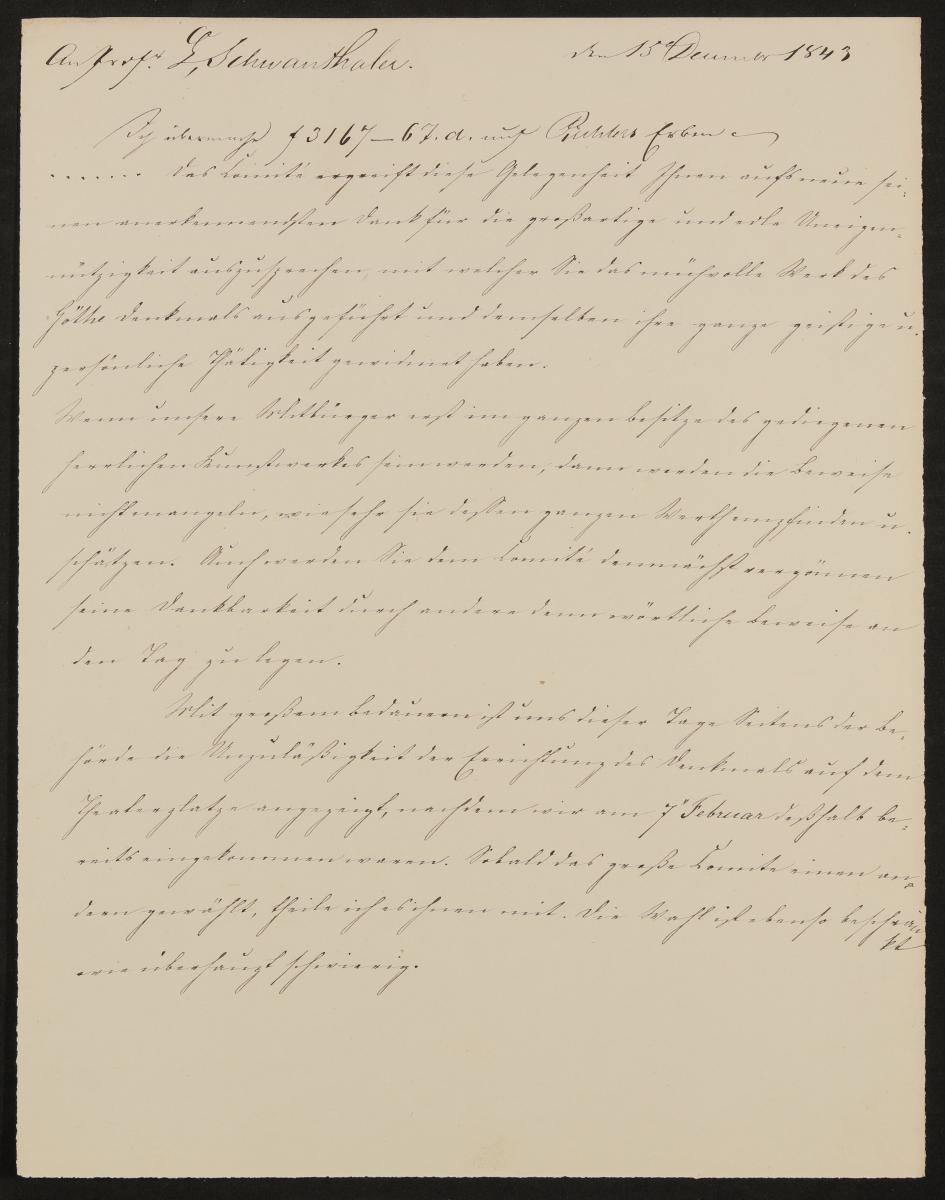 An Profr. L. Schwanthaler. den 15 December 1843
Ich übermache f 3167–67. d. auf Pichlers Erben
....... das Comité ergreift diese Gelegenheit Ihnen aufs neue sei-
nen anerkennendsten Dank für die großartige und edle Uneigen-
nützigkeit auszusprechen, mit welcher Sie das mühvolle Werk des
Göthe Denkmals ausgeführt und demselben ihre ganze geistige u.
persönliche Thätigkeit gewidmet haben.
Wenn unsere Mitbürger erst im ganzen Besitze des gediegenen
herrlichen Kunstwerkes sein werden, dann werden die Beweise
nicht mangeln, wie sehr sie dessen ganzen Werth empfinden u.
schätzen. Auch werden Sie dem Comité demnächst vergönnen
seine Dankbarkeit durch andere denn wörtliche Beweise an
den Tag zu legen.
Mit großem Bedauern ist uns dieser Tage Seitens der Be-
hörde die Unzuläßigkeit der Errichtung des Denkmals auf dem
Theaterplatze angezeigt, nachdem wir am 7n Februar deßhalb be-
reits eingekommen waren. Sobald das große Comite einen an-
dern gewählt, theile ich es ihnen mit. Die Wahl ist ebenso beschrän
kt
wie überhaupt schwierig.